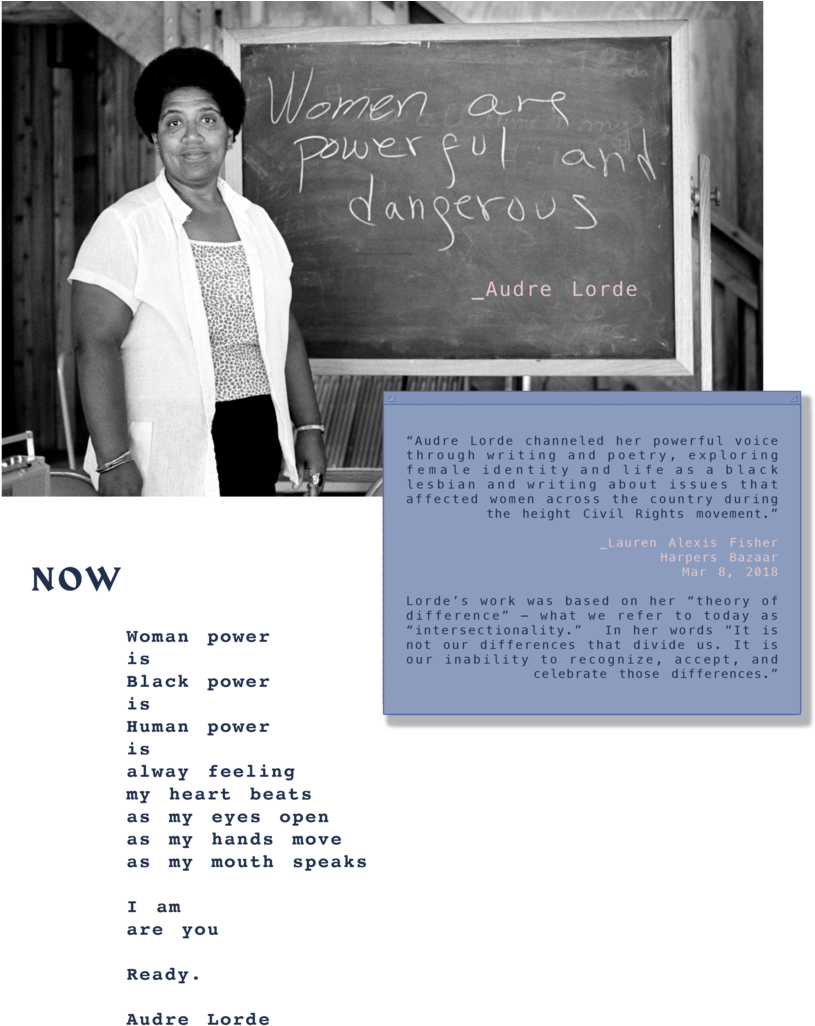 Women are
powerful and
dangerous
_Audre Lorde
“Audre Lorde channeled her powerful voice
through writing and poetry, exploring
female identity and life as a black
lesbian and writing about issues that
affected women across the country during
the height Civil Rights movement.”
_Lauren Alexis Fisher
Harpers Bazaar
Mar 8, 2018
Lorde’s work was based on her “theory of
difference” — what we refer to today as
“intersectionality.” In her words “It is
not our differences that divide us. It is
our inability to recognize, accept, and
celebrate those differences.”
NOW
Woman power
is
Black power
is
Human power
is
alway feeling
my heart beats
as my eyes open
as my hands move
as my mouth speaks
I am
are you
Ready.
Audre Lorde